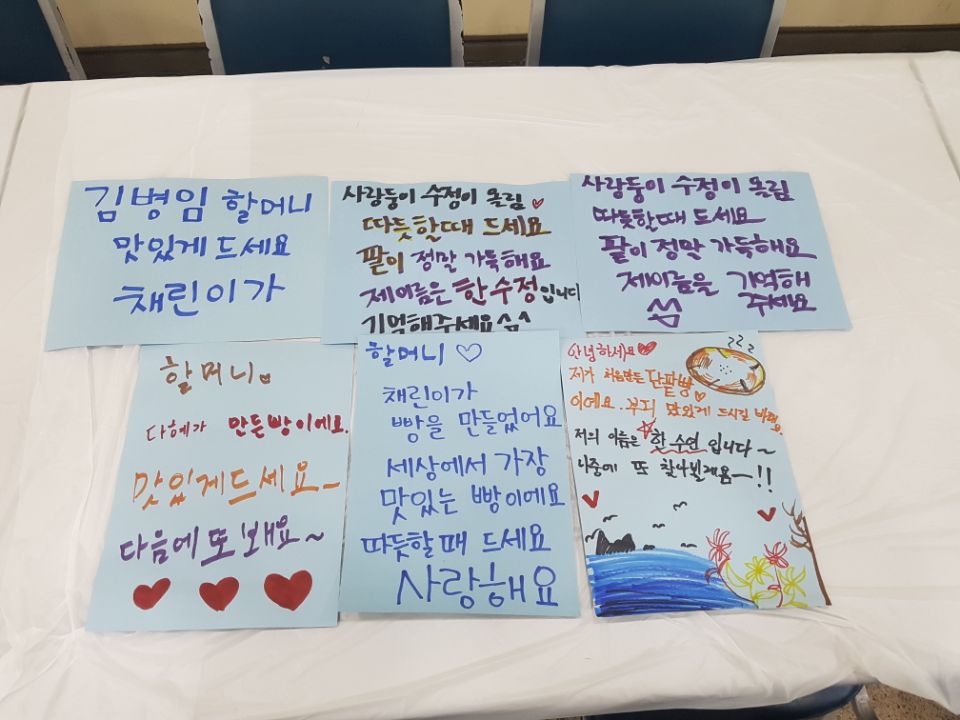 김병임 할머니
맛있게 드세요
채린이가
사랑둥이 수정이 올림 ♡
따뜻할때 드세요
팥이 정말 가득해요
제이름은 한수정입니다
기억해주세요 ^^
사랑둥이 수정이 올림
따뜻할때 드세요
팥이 정말 가득해요
제이름을 기억해
주세요
할머니
다혜가 만든빵이에요.
맛있게드세요~
다음에 또 봬요~
할머니 ♡
채린이가
빵을 만들었어요
세상에서 가장
맛있는 빵이에요
따뜻할 때 드세요
사랑해요
안녕하세요
제가 처음만든 단팥빵
이에요. 부디 맛있게 드시길 바래
요.
저의 이름은 한수연 입니다~
나중에 또 찾아뵐게요~!!